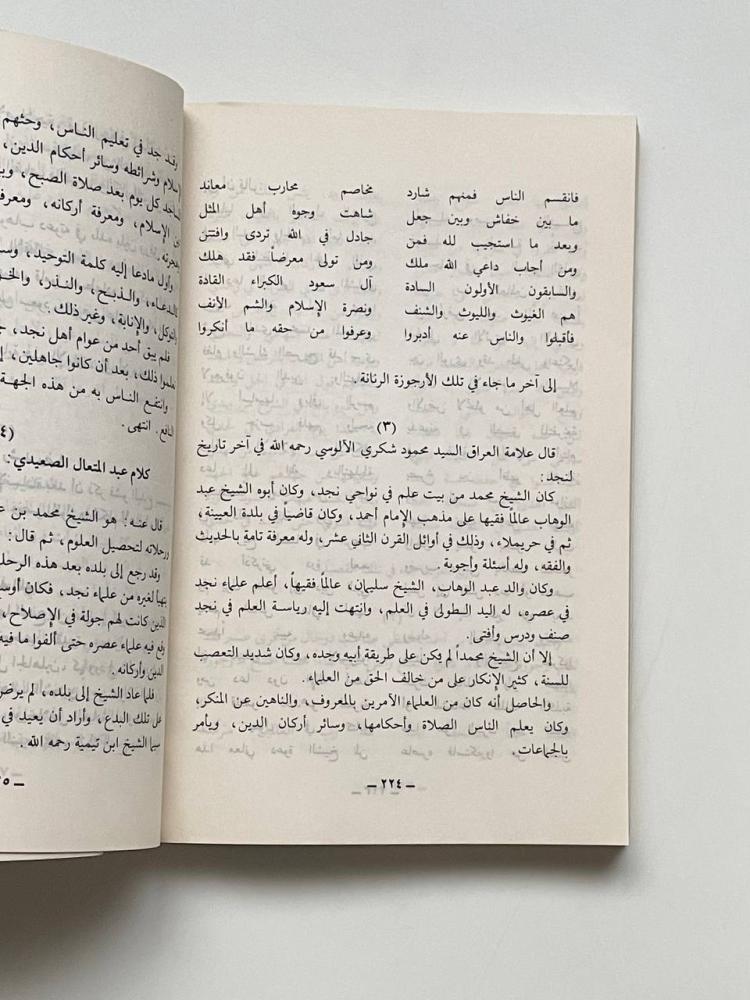 فانقسم الناس فمنهم شارد مخاصم محارب معاند
ما بين خفاش وبين جعل شاهت وجوه أهل المثل
وبعد ما استجيب لله فمن جادل في الله تردى وافتتن
ومن أجاب داعي الله ملك ومن تولى معرضاً فقد هلك
والسابقون الأولون السادة آل سعود الكبراء القادة
هم الغيوث والليوث والشنف ونصرة الإسلام والشم الأنف
فأقبلوا والناس عنه أدبروا وعرفوا من حقه ما أنكروا
إلى آخر ما جاء في تلك الأرجوزة الرنانة.
(٣)
قال علامة العراق السيد محمود شكري الألوسي رحمه الله في آخر تاريخ
لنجد:
كان الشيخ محمد من بيت علم في نواحي نجد، وكان أبوه الشيخ عبد
الوهاب عالماً فقيها على مذهب الإمام أحمد، وكان قاضياً في بلدة العيينة،
ثم في حريملاء، وذلك في أوائل القرن الثاني عشر، وله معرفة تامة بالحديث
والفقه، وله أسئلة وأجوبة.
وكان والد عبد الوهاب، الشيخ سليمان، عالماً فقيهاً، أعلم علماء نجد
في عصره، له اليد الطولى في العلم، وانتهت إليه رياسة العلم في نجد
صنف ودرس وأفتى.
إلا أن الشيخ محمداً لم يكن على طريقة أبيه وجده، وكان شديد التعصب
للسنة، كثير الإنكار على من خالف الحق من العلماء.
والحاصل أنه كان من العلماء الآمرين بالمعروف، والناهين عن المنكر،
وكان يعلم الناس الصلاة وأحكامها، وسائر أركان الدين، ويأمر
بالجماعات.
ــ ٢٢٤ ــ
وقد جد في تعليم الناس، وحثهم
وشرائطه وسائر أحكام الدين،
كل يوم بعد صلاة الصبح،
الإسلام، ومعرفة أركانه،
وأول مادعا إليه كلمة التوحيد،
والذبح، والنذر،
والإنابة، وغير ذلك.
فلم يبق أحد من عوام أهل نجد،
ذلك، بعد أن كانوا جاهلين،
وانتفع الناس به من هذه الجهة
النافع. انتهى.
كلام عبد المتعال الصعيدي:
قال عنه: هو الشيخ محمد بن
ورحلاته لتحصيل العلوم، ثم قال:
وقد رجع إلى بلده بعد هذه
لغيره من علماء نجد، فكان
الذين كانت لهم جولة في الإصلاح،
فيه علماء عصره حتى ألفوا ما فيه
الدين وأركانه.
فلما عاد الشيخ إلى بلده، لم
على تلك البدع، وأراد أن يعيد في
سيما الشيخ ابن تيمية رحمه الله.